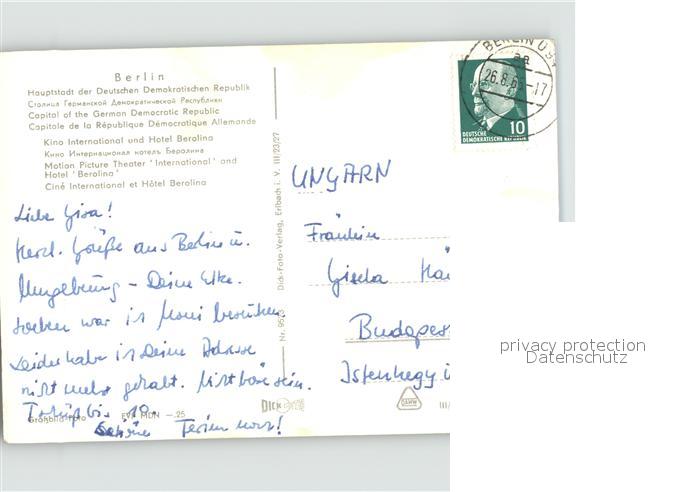 Berlin
Hauptstadt der Deutschen Demokratischen Republik
Столица Германской Демократической Республики
Capital of the German Democratic Republic
Capitale de la République Démocratique Allemande
Kino International und Hotel Berolina
Кино Интернационал котель Беролина
Motion Picture Theater 'International' and
Hotel 'Berolina'
Ciné International et Hôtel Berolina
Liebe Gisa!
Herzl. Grüße aus Berlin u.
Umgebung – Deine Elke.
Soeben war ich besuchen
Leider habe ich Deine Adresse
nicht mehr gehabt. Nicht böse sein.
Tschüß bis
Schöne Ferien noch!
Großbild-Foto EVP MDN -.25
Nr. Dick-Foto-Verlag, Erlbach i. V. III/23/27
DICK
BERLIN
26.8.65-17
10
DEUTSCHE
DEMOKRATISCHE REPUBLIK
UNGARN
Fräulein
Gisela
Budapes
Istenhegy
III/
privacy protection
Datenschutz